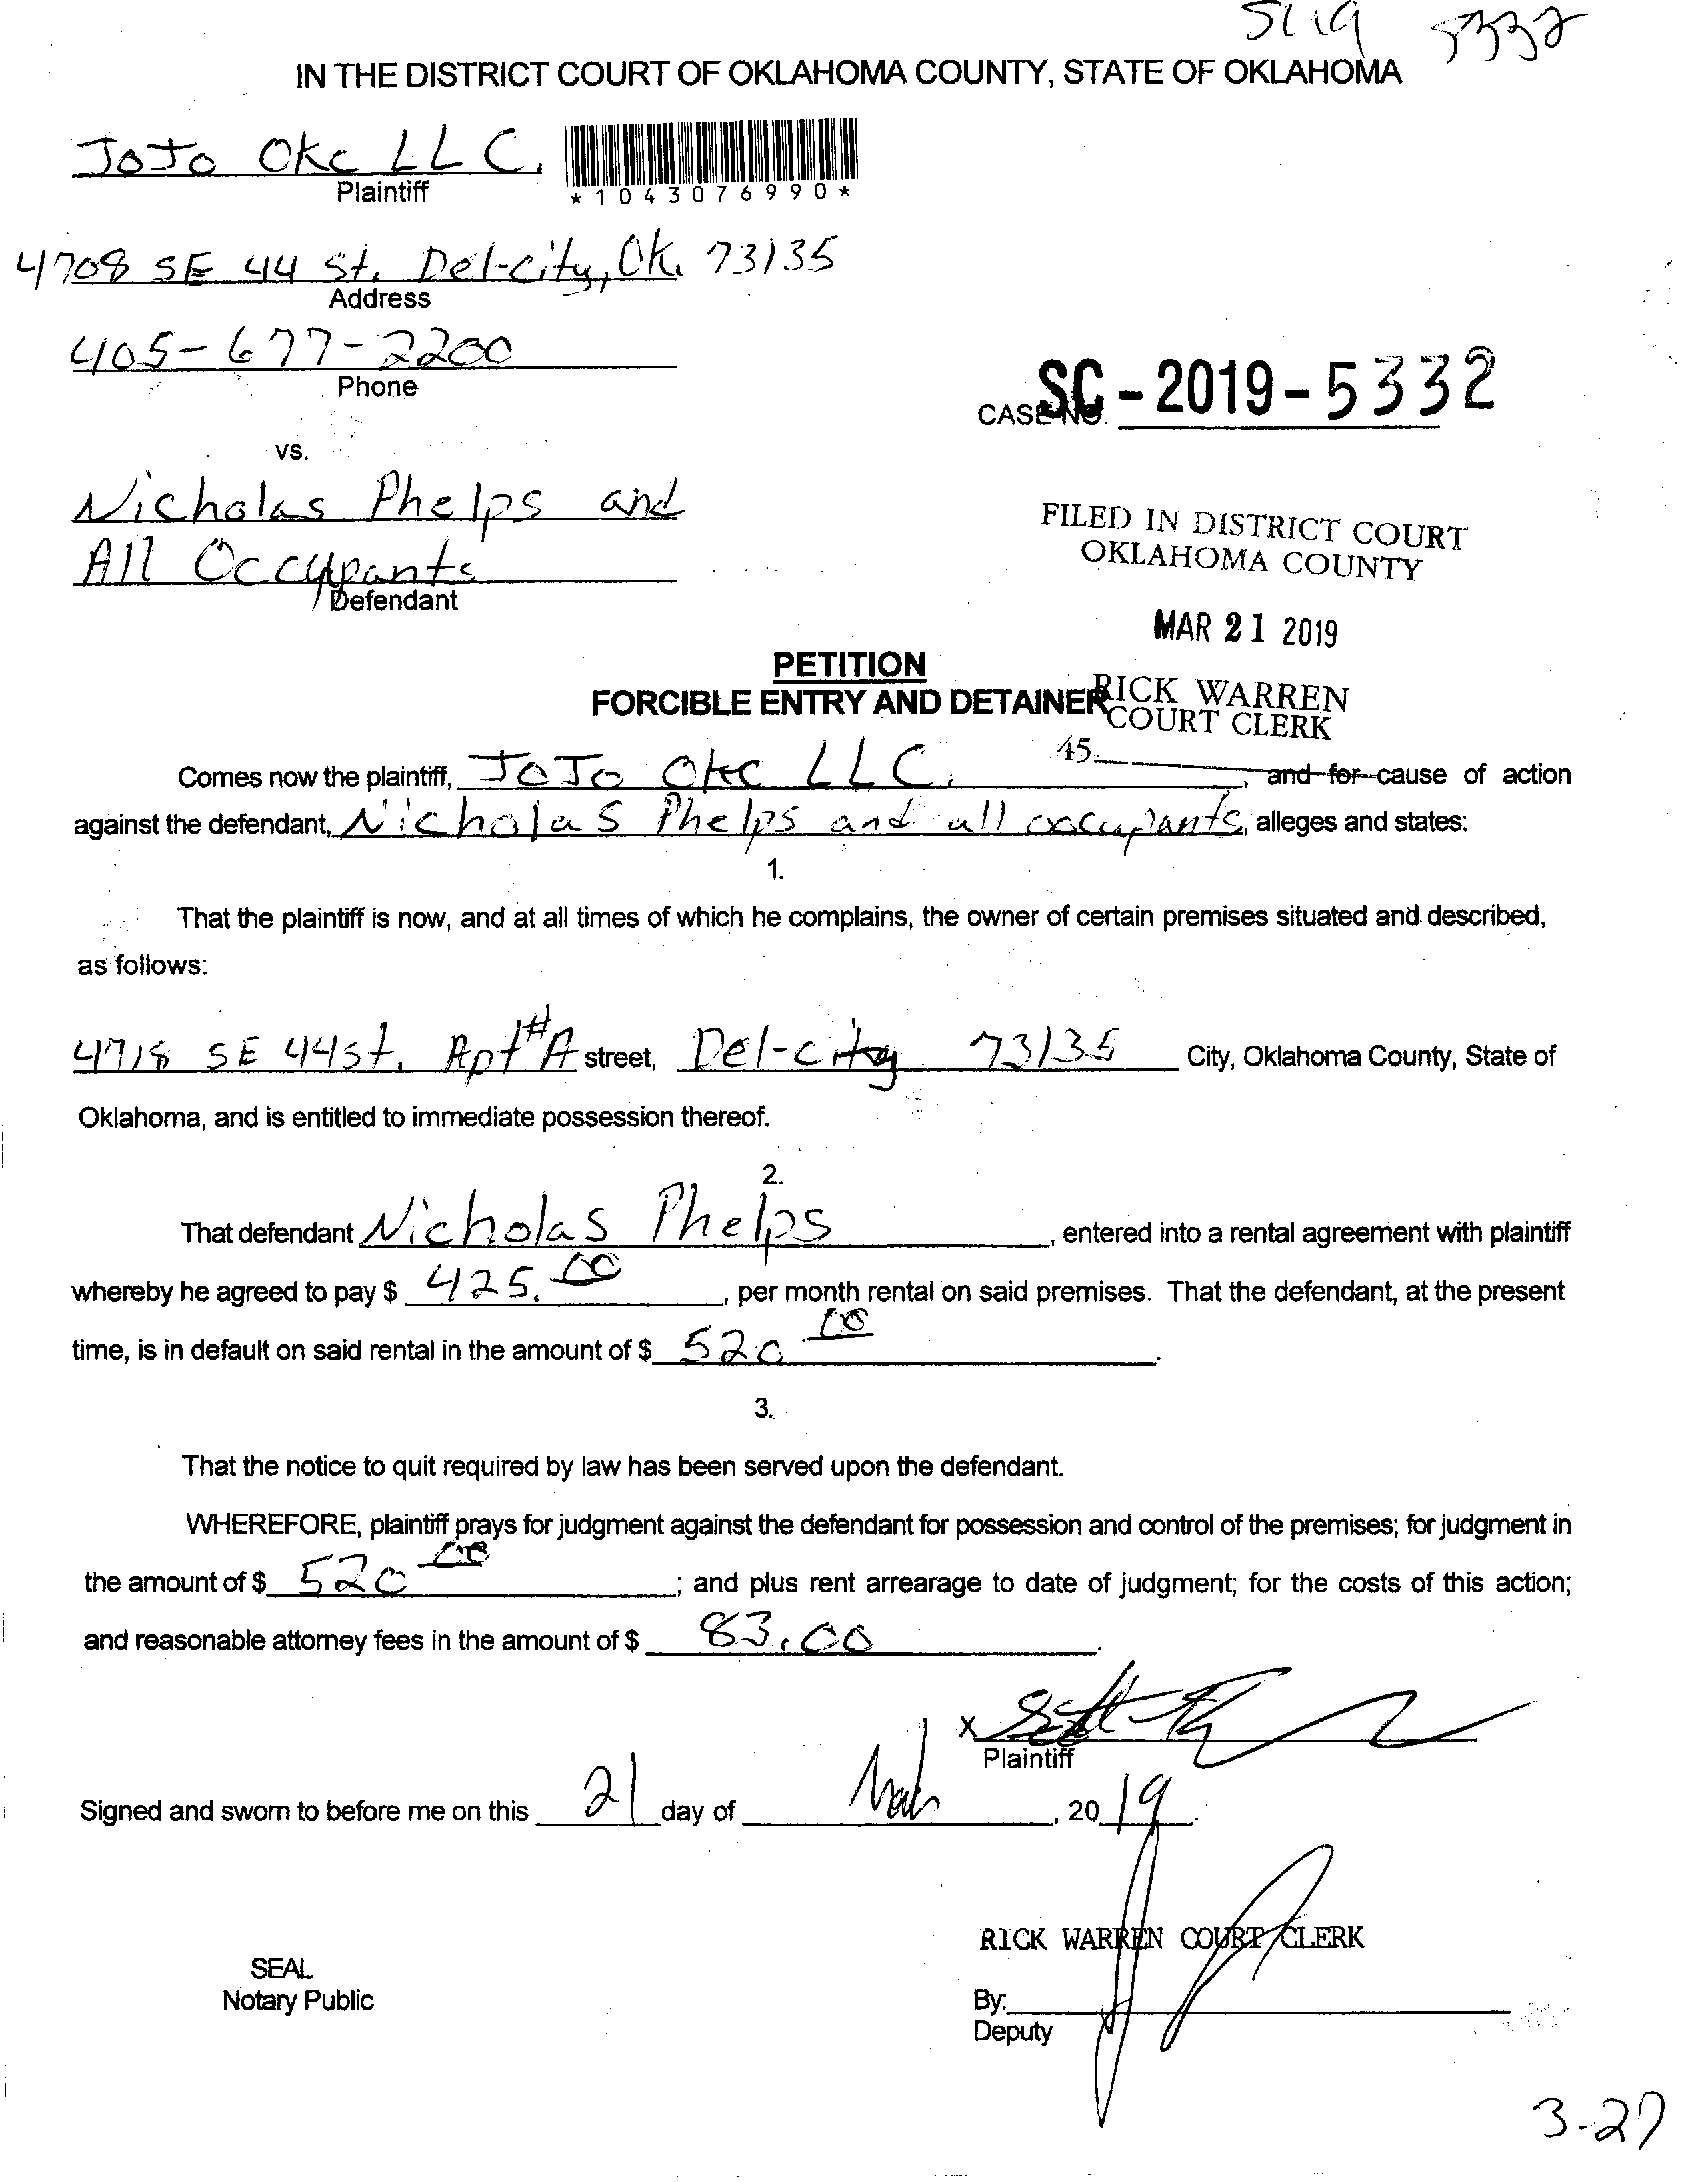 5332
IN THE DISTRICT COURT OF OKLAHOMA COUNTY, STATE OF OKLAHOMA
JoJo Okc LLC.
Plaintiff
*1043076990*
4708 SE 44 St. Del-city, Ok. 73135
Address
405-677-2200
Phone
CASE NO. SC-2019-5332
vs.
Nicholas Phelps and
All Occupants
Defendant
FILED IN DISTRICT COURT
OKLAHOMA COUNTY
MAR 21 2019
RICK WARREN
COURT CLERK
45
PETITION
FORCIBLE ENTRY AND DETAINER
Comes now the plaintiff, JoJo Okc LLC. , and for cause of action
against the defendant, Nicholas Phelps and all occupants, alleges and states:
1.
That the plaintiff is now, and at all times of which he complains, the owner of certain premises situated and described,
as follows:
4718 SE 44 St. Apt #A street, Del-city 73135 City, Oklahoma County, State of
Oklahoma, and is entitled to immediate possession thereof.
2.
That defendant Nicholas Phelps , entered into a rental agreement with plaintiff
whereby he agreed to pay $ 425.00 , per month rental on said premises. That the defendant, at the present
time, is in default on said rental in the amount of $ 520 00.
3.
That the notice to quit required by law has been served upon the defendant.
WHEREFORE, plaintiff prays for judgment against the defendant for possession and control of the premises; for judgment in
the amount of $ 520 00 ; and plus rent arrearage to date of judgment; for the costs of this action;
and reasonable attorney fees in the amount of $ 83.00 .
X
Plaintiff
Signed and sworn to before me on this 21 day of , 20 19.
RICK WARREN COURT CLERK
SEAL
Notary Public
By:
Deputy
3-27